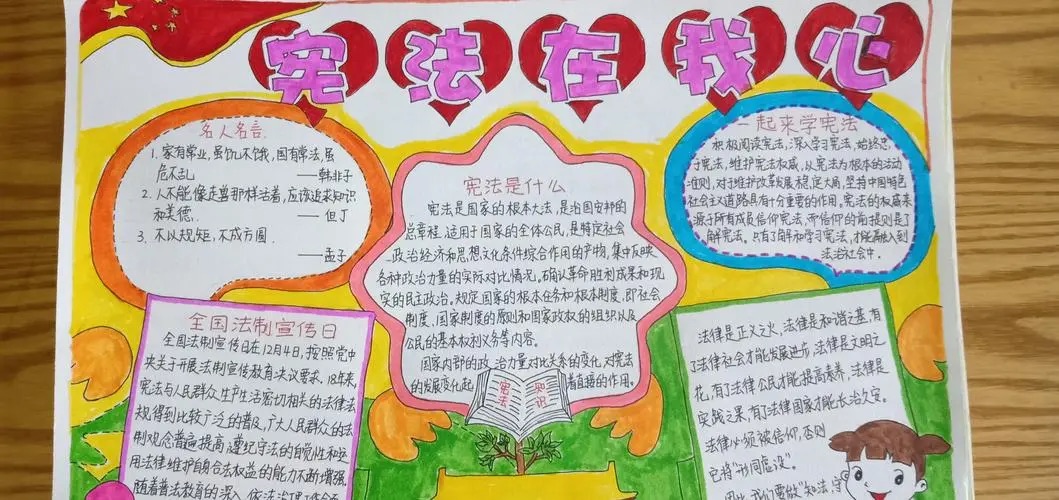 宪法在我心
名人名言
1. 家有常业,虽饥不饿,国有常法,虽
危不乱 ——韩非子
2. 人不能像走兽那样活着,应该追求知识
和美德. ——但丁
3. 不以规矩,不成方圆.
——孟子
宪法是什么
宪法是国家的根本大法,是治国安邦的
总章程.适用于国家的全体公民,是特定社会
政治经济和思想文化条件综合作用的产物,集中反映
各种政治力量的实际对比情况.确认革命胜利成果和现
实的民主政治.规定国家的根本任务和根本制度,即社会
制度、国家制度的原则和国家政权的组织以及
公民的基本权利义务等内容.
国家内部的政治力量对比关系的变化,对宪法
的发展变化起 着直接的作用.
宪法
知识
一起来学宪法
积极阅读宪法,深入学习宪法,始终忠
于宪法,维护宪法权威,从宪法为根本的活动
准则,对于维护改革发展稳定大局,坚持中国特色
社会主义道路具有十分重要的作用,宪法的权益来
源于所有成员信仰宪法,而信仰的前提则是了
解宪法.只有了解和学习宪法,才能融入到
法治社会中.
全国法制宣传日
全国法制宣传日在12月4日,按照党中
央关于开展法制宣传教育决议要求,18年来,
宪法与人民群众生产生活密切相关的法律法
规得到比较广泛的普及,广大人民群众的法
制观念普遍提高,遵纪守法的自觉性和运
用法律维护自身合法权益的能力不断增强.
随着普法教育的深入,依法治理工作
法律是正义之火,法律是和谐之基,有
了法律社会才能发展进步,法律是文明之
花,有了法律公民才能提高素养,法律是
实践之果,有了法律国家才能长治久安.
法律必须被信仰,否则
它将"形同虚设".
因此,我们要做"知法,守